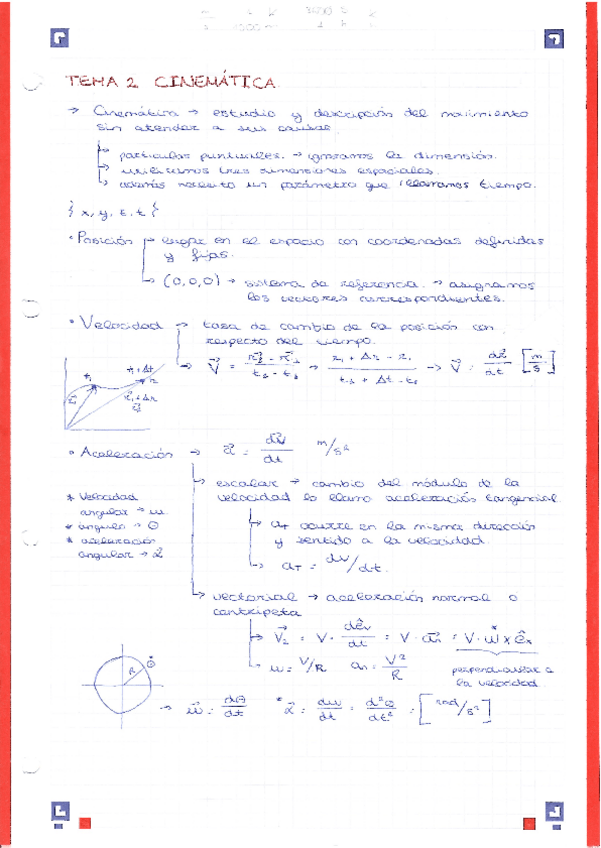 TEMA 2 CINEMÁTICA
→ Cinemática → estudio y descripción del movimiento
sin atender a sus causas.
→ partículas puntuales. → ignoramos la dimensión.
→ utilizamos tres dimensiones espaciales.
→ además necesito un parámetro que llamamos tiempo.
{x, y, z, t}
• Posición → lugar en el espacio con coordenadas definidas
y fijas.
→ (0,0,0) → sistema de referencia. → asignamos
los vectores correspondientes.
• Velocidad → tasa de cambio de la posición con
respecto del tiempo.
→ V = r2 - r1 / t2 - t1 → r1 + Δr - r1 / t1 + Δt - t1 → V = dr/dt [m/s]
• Aceleración → a = dv/dt m/s²
→ escalar → cambio del módulo de la
velocidad lo llamo aceleración tangencial
→ aT ocurre en la misma dirección
y sentido a la velocidad.
→ aT = dv/dt.
* Velocidad
angular → ω
* ángulo → θ
* aceleración
angular → α
→ vectorial → aceleración normal o
centrípeta
→ V = V · dêv/dt = V · an = V · ω x êx
→ ω = V/R an = V²/R
perpendicular a
la velocidad
R θ
→ ω = dθ/dt * α = dω/dt = d²θ/dt² = [rad/s²]